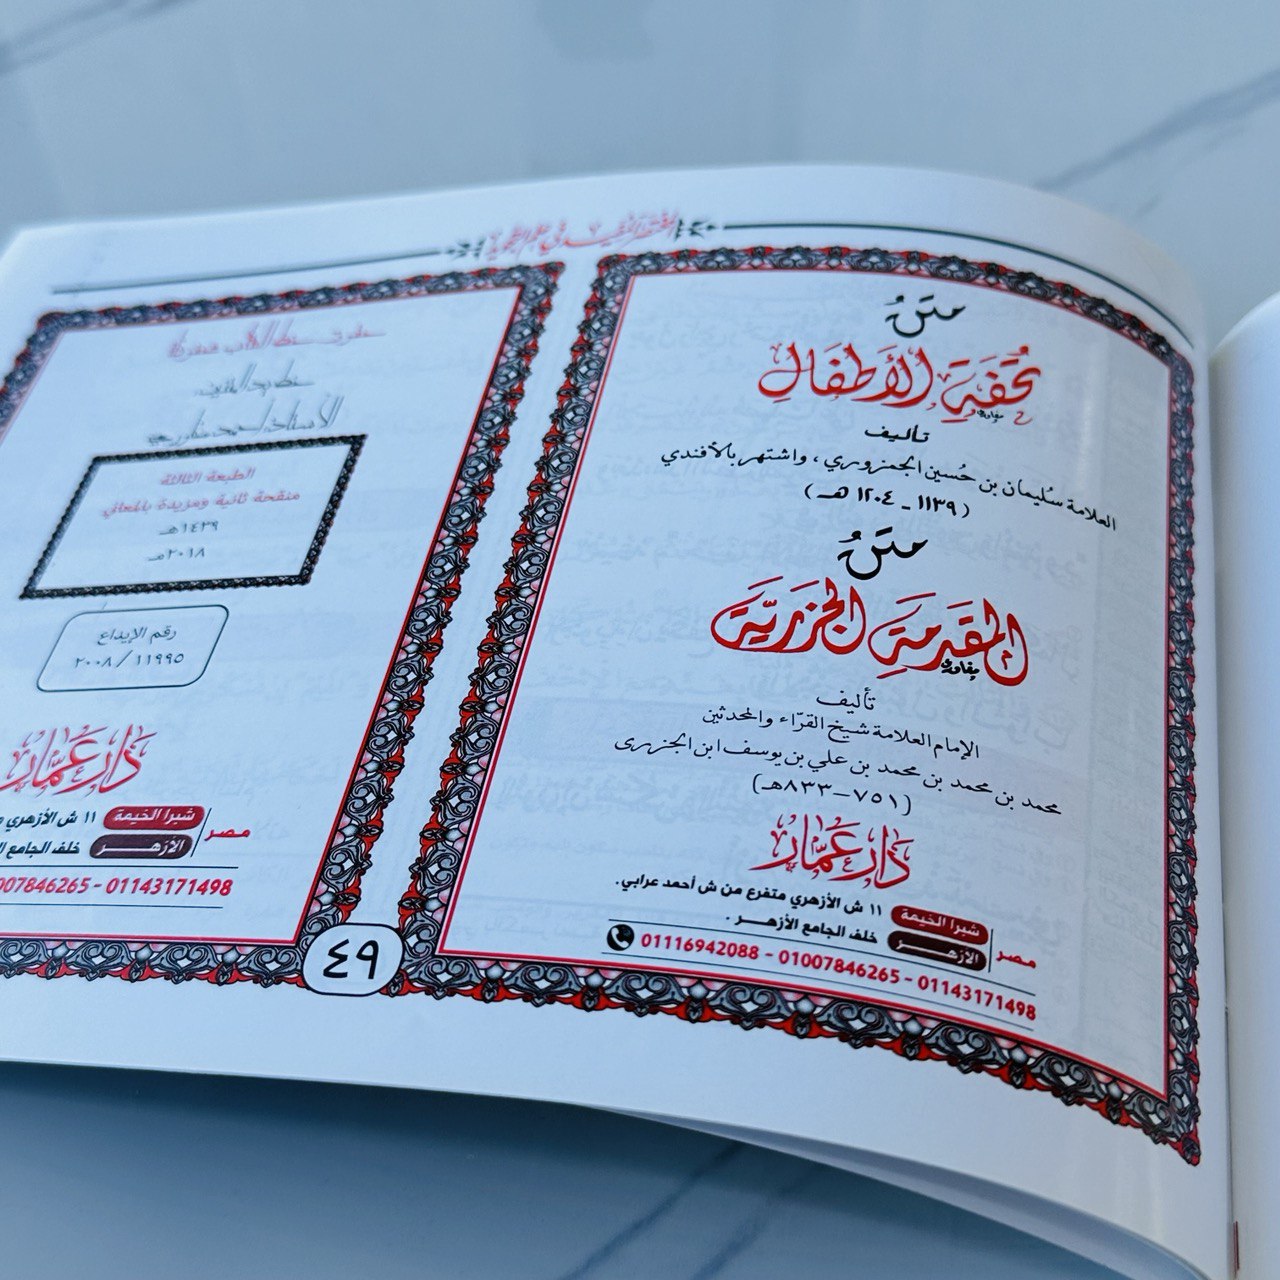 المختصر المفيد في علم التجويد
متن
تحفة الأطفال
تأليف
العلامة سليمان بن حُسين الجمزوري ، واشتهر بالأفندي
( ١١٣٩ - ١٢٠٤ هـ )
متن
المقدمة الجزرية
تأليف
الإمام العلامة شيخ القرّاء والمحدثين
محمد بن محمد بن محمد بن علي بن يوسف ابن الجزري
(٧٥١-٨٣٣هـ)
دار عمار
مصر
شبرا الخيمة ١١ ش الأزهري متفرع من ش أحمد عرابي .
الأزهر خلف الجامع الأزهر .
01116942088 - 01007846265 - 01143171498
الأستاذ أحمد
الطبعة الثالثة
منقحة ثانية ومزيدة بالمعاني
١٤٣٩هـ
٢٠١٨مـ
رقم الإيداع
٢٠٠٨/١١٩٩٥
دار عمار
مصر
شبرا الخيمة ١١ ش الأزهري
الأزهر خلف الجامع
007846265 - 01143171498
٤٩